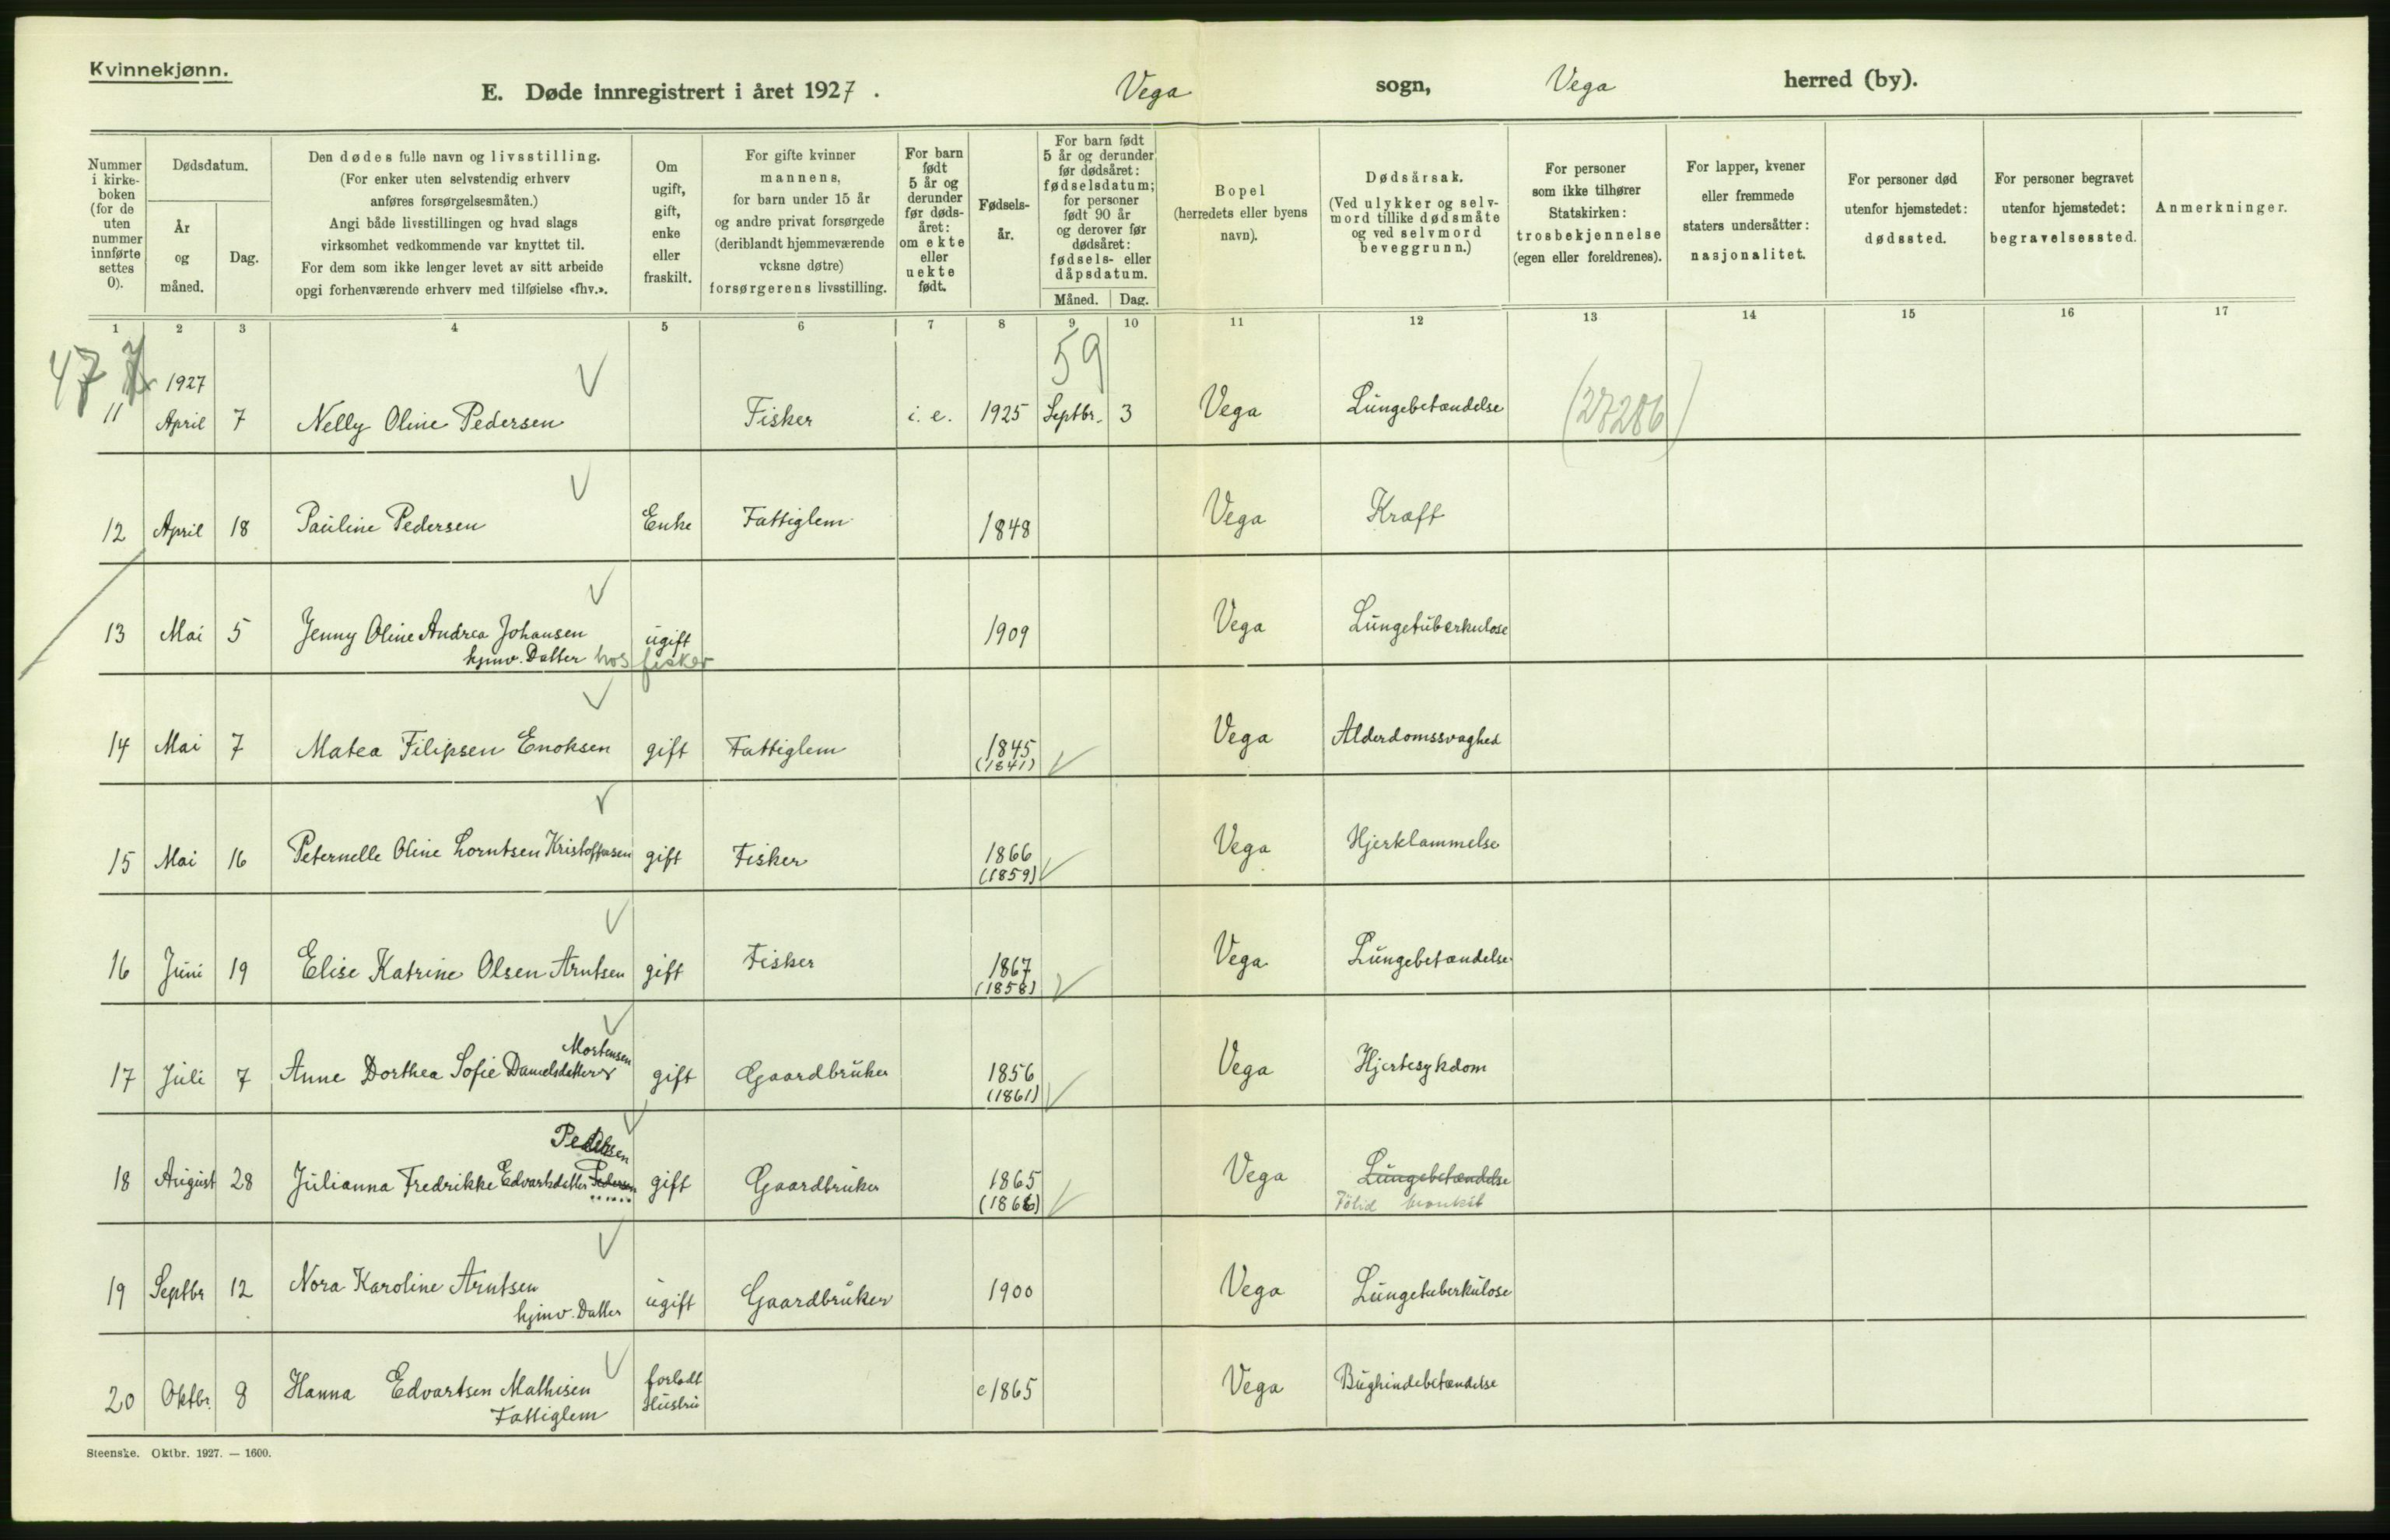 Kvinnekjønn.
E. Døde innregistrert i året 1927. Vega sogn, Vega herred (by).
Nummer i kirke-boken (for de uten nummer innførte settes 0).
Dødsdatum.
År og måned.
Dag.
Den dødes fulle navn og livsstilling.
(For enker uten selvstendig erhverv
anføres forsørgelsesmåten.)
Angi både livsstillingen og hvad slags
virksomhet vedkommende var knyttet til.
For dem som ikke lenger levet av sitt arbeide
opgi forhenværende erhverv med tilføielse «fhv.».
Om ugift, gift, enke eller fraskilt.
For gifte kvinner
mannens,
for barn under 15 år
og andre privat forsørgede
(deriblandt hjemmeværende
voksne døtre)
forsørgerens livsstilling.
For barn født 5 år og derunder før døds-året: om ekte eller uekte født.
Fødsels-år.
For barn født
5 år og derunder
før dødsåret:
fødselsdatum;
for personer
født 90 år
og derover før
dødsåret:
fødsels- eller
dåpsdatum.
Måned. Dag.
Bopel
(herredets eller byens
navn).
Dødsårsak.
(Ved ulykker og selv-
mord tillike dødsmåte
og ved selvmord
beveggrunn.)
For personer
som ikke tilhører
Statskirken:
trosbekjennelse
(egen eller foreldrenes).
For lapper, kvener
eller fremmede
staters undersåtter:
nasjonalitet.
For personer død
utenfor hjemstedet:
dødssted.
For personer begravet
utenfor hjemstedet:
begravelsessted.
Anmerkninger.
1 2 3 4 5 6 7 8 9 10 11 12 13 14 15 16 17
47
59
1927
11 April 7 Nelly Oline Pedersen Fisker i. e. 1925 Septbr. 3 Vega Lungebetændelse (27286)
12 April 18 Pauline Pedersen Enke Fattiglem 1848 Vega Kræft
13 Mai 5 Jenny Oline Andrea Johansen ugift 1909 Vega Lungetuberkulose
hjmv. Datter hos fisker
14 Mai 7 Matea Filipsen Enoksen gift Fattiglem 1845 Vega Alderdomssvaghed
(1841)
15 Mai 16 Peternelle Oline Lorntsen Kristoffersen gift Fisker 1866 Vega Hjerklammelse
(1859)
16 Juni 19 Elise Katrine Olsen Arntsen gift Fisker 1867 Vega Lungebetændelse
(1858)
Mortensen
17 Juli 7 Anne Dorthea Sofie Danielsdatter gift Gaardbruker 1856 Vega Hjertesykdom
(1861)
Pedersen
18 August 28 Julianna Fredrikke Edvartsdatter Pedersen gift Gaardbruker 1865 Vega Lungebetændelse
(1866)
19 Septbr 12 Nora Karoline Arntsen ugift Gaardbruker 1900 Vega Lungetuberkulose
hjmv. Datter
20 Oktbr. 8 Hanna Edvartsen Mathisen forladt Hustru c 1865 Vega Bughindebetændelse
Fattiglem
Steenske. Oktbr. 1927. — 1600.